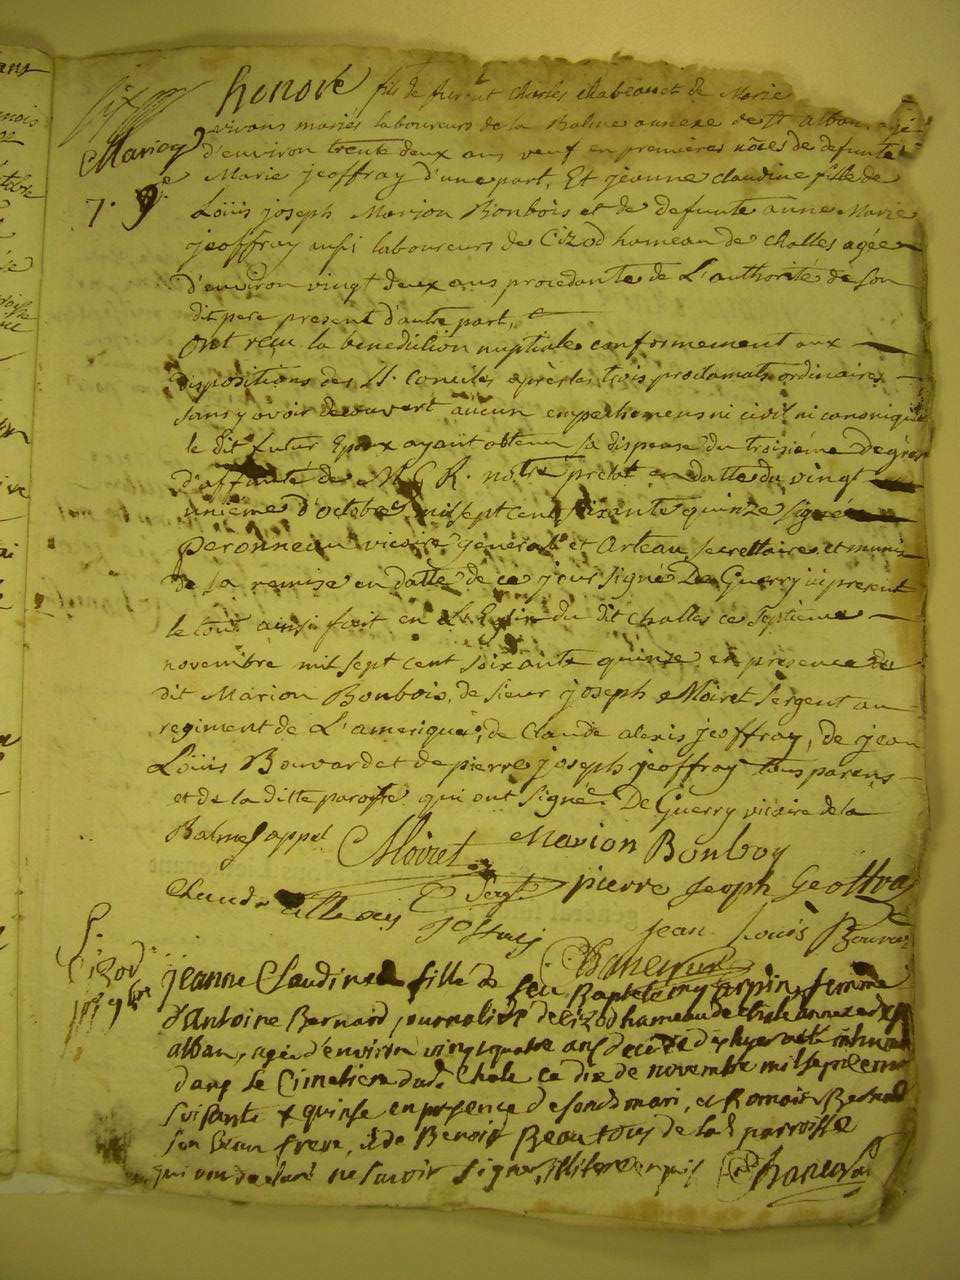 honoré fils de furent Charles chabeau et de Marie
vivans mariés laboureurs de la Balme annexe de St alban, agé
Mariag
d'environ trente deux ans veuf en premieres nôces de defunte
Marie jeoffray d'une part, Et jeanne Claudine fille de
7. 9.e
Loüis joseph Marion Bonbois et de defunte anne Marie
jeoffray aussi laboureurs de Cizod hameau de challes agée
d'environ vingt deux ans procedante de L'authorité de son
dit pere present d'autre part,
ont reçu la bénédiction nuptiale conformement aux
dispositions des SS. Conciles après les trois proclamats ordinaires
sans y avoir decouvert aucun empechemens ni civil ni canonique
le dit futur Epoux ayant obtenu sa dispense du troisiéme degrés
d'affinité de M G R. notre prelat en datte du vingt
unième d'octobre mil sept cent soixante quinze signée
Peronneau vicaire général et Arteau secrettaire et munis
de la remise en datte de ce jour signé De Guerry ici present
le tout ainsi fait en L'Eglise du dit challes ce septième
novembre mil sept cent soixante quinze en presence du
dit Marion Bonbois, de sieur joseph Moiret sergent au
regiment de L'amerique, de Claude alexis jeoffray, de jean
Loüis Bouvard et de pierre joseph jeoffray tous parens
et de la ditte paroisse qui ont signé. De Guerry vicaire de la
Balme appel
Moiret Marion Bonboy
Sergt pierre Joseph Geoffra
Claude
jean Louis Bouvar
S.
Cizod
jeanne Claudine fille de feu Baptiste myarpin, femme
d'antoine Bernard, journalier de Cizod hameau de chale annexe de St
alban, agée d'environ vingt quatre ans decede d'hyer a eté inhumé
dans le Cimetiere dud. Chale ce dix de novembre mil sept cent
soisante & quinse en presence de sondt mari, et Romain Bernard
son beau frere, & de Benoit Beau tous de lad parroisse
qui ont declaré ne savoir signer,